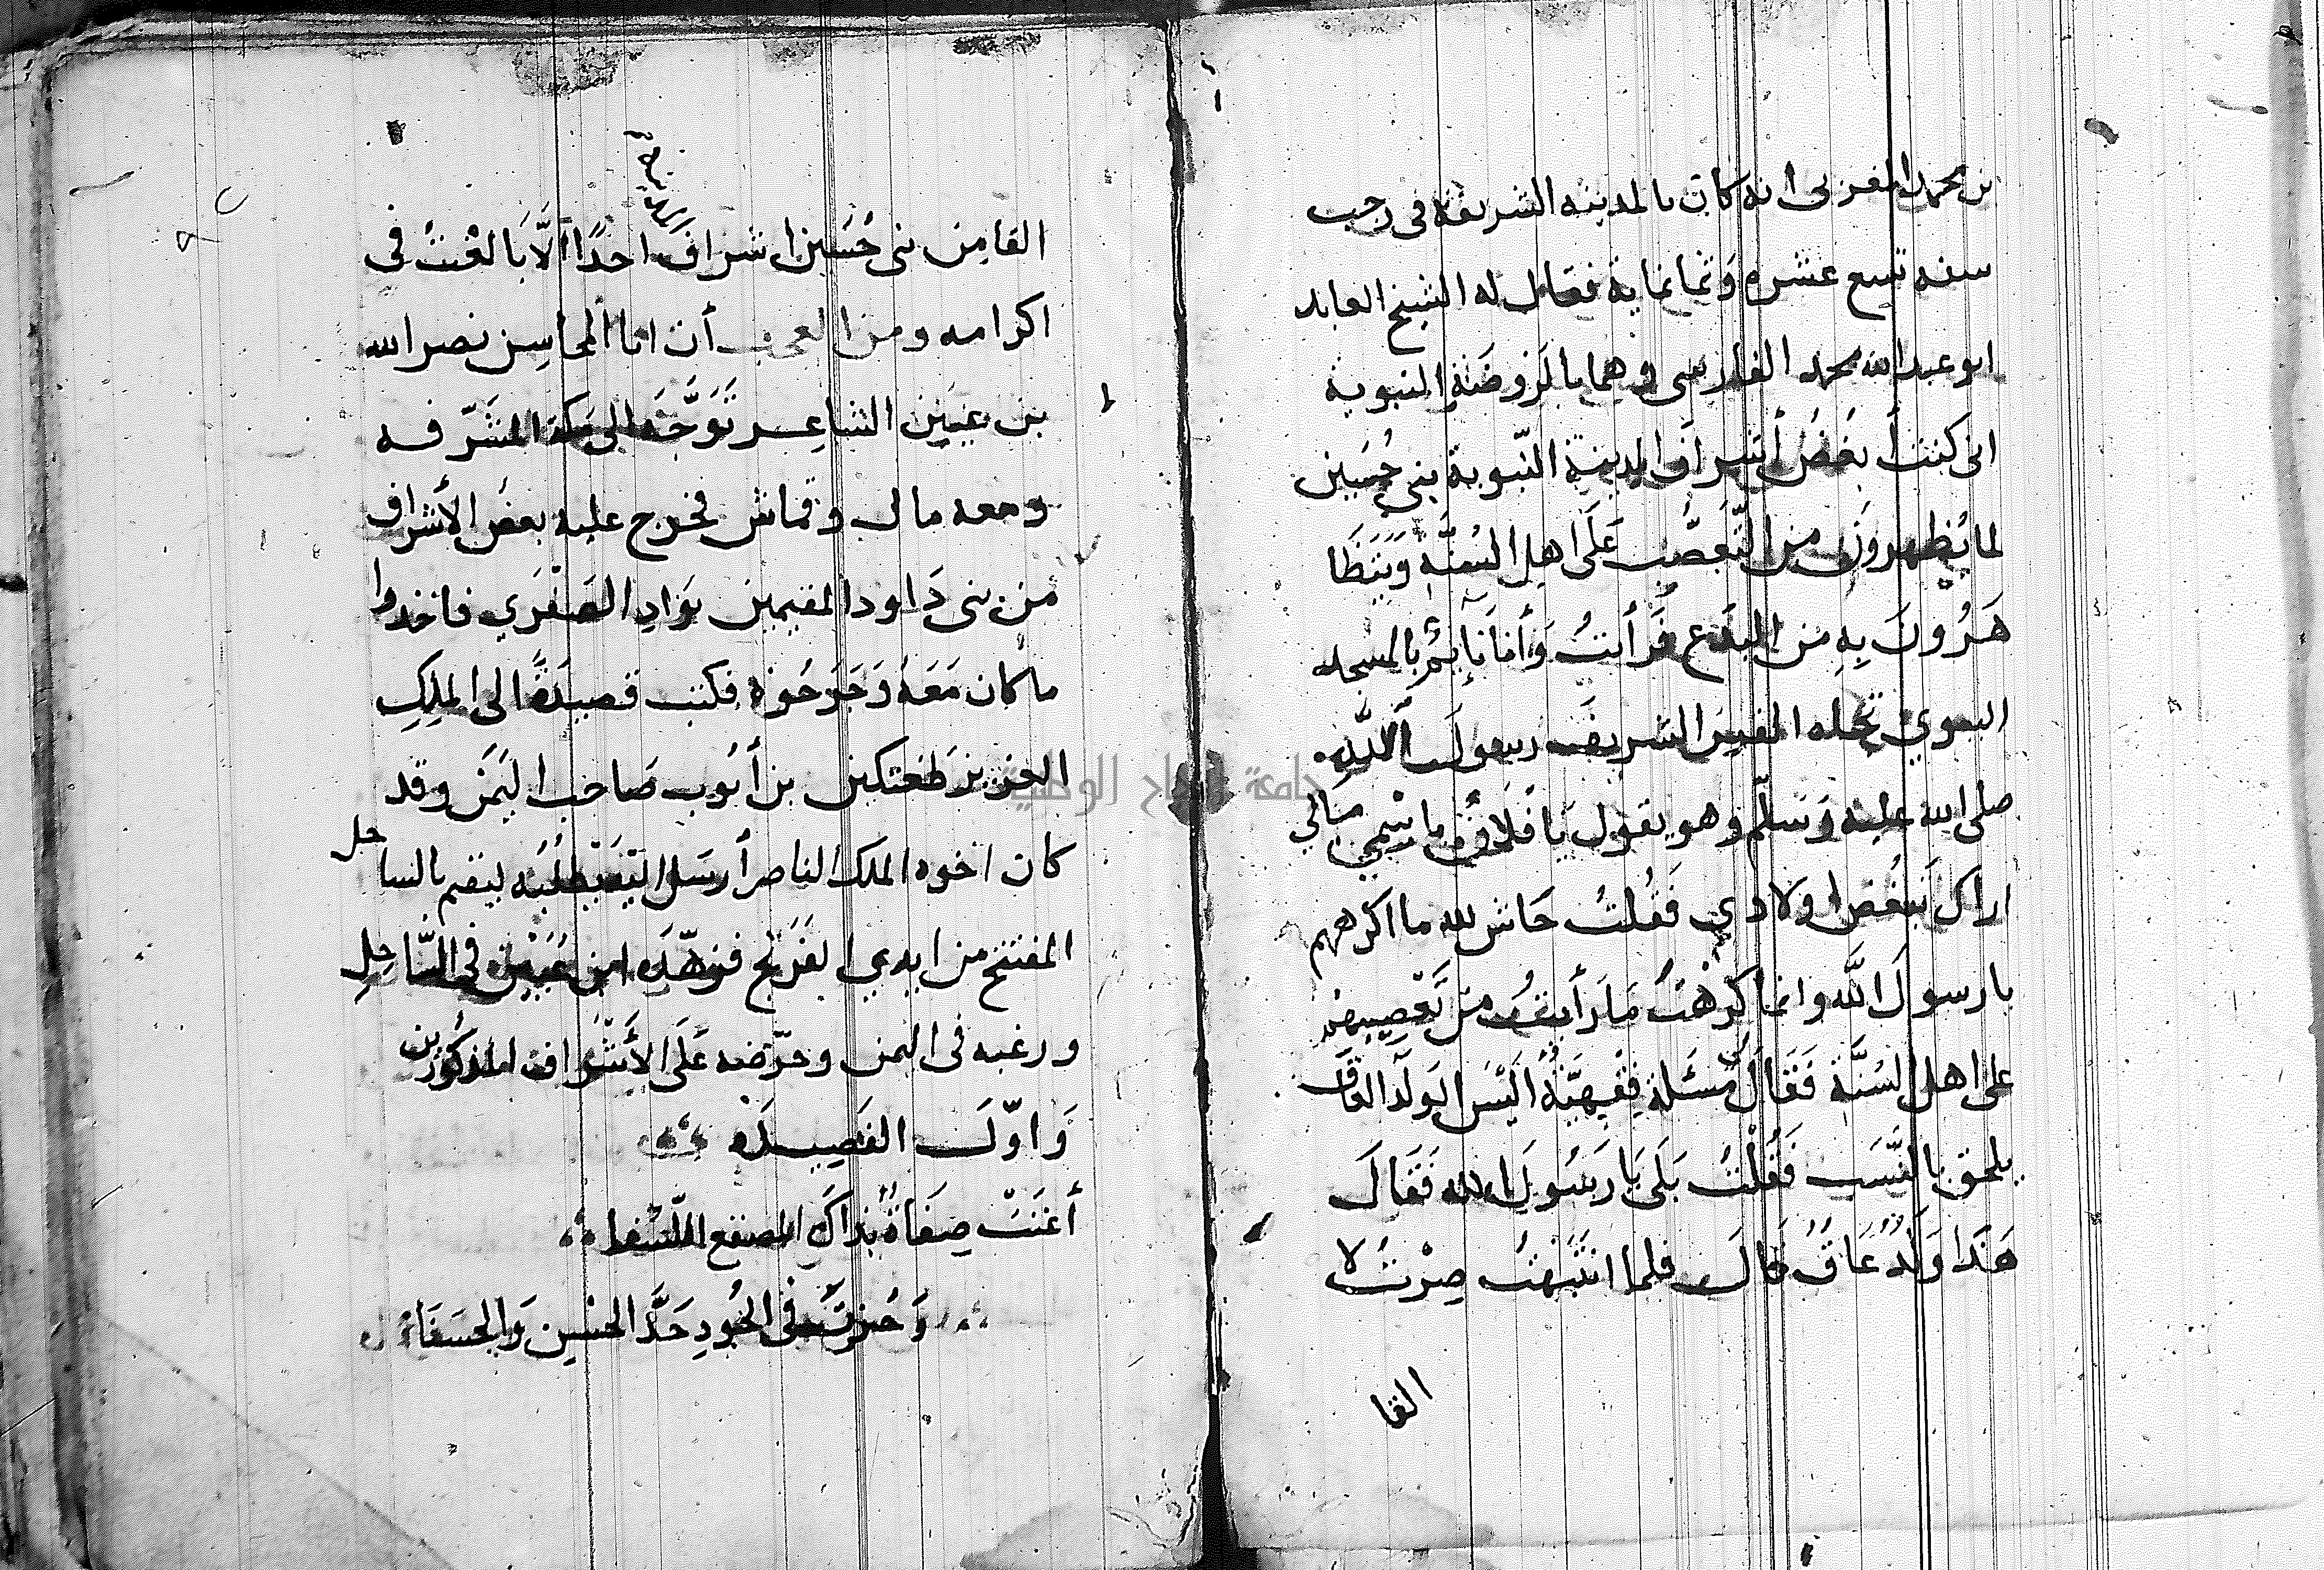 بن محمد المغربى انه كان بالمدينه الشريفه فى رجب
سنه تسع عشره وَثمانماية فقال له الشيخ العابد
ابو عبد الله محمد الفارسى وهما بالرَوضَةِ النبوية
انى كنت أبغضُ أشرافَ المدينة النّبوية بني حُسَين
لما يُظهرونَ من التَّعصُّبِ عَلَى اهل السُنَّة وَيَتَظَا
هَرُونَ بِه من البدَع فَرأيتُ وَأنا نَايِمٌ بالمسجد
النبوي تجاه القبر الشريف رسولَ اللَّهِ
صلى الله عليه وَسَلّم وهو يقول يَا فلان باسْمِي مالي
اراك تبغض اولادي فَقُلتُ حَاش لله ما اكرههم
يا رسولَ اللَّه وانما كرهْتُ مَا رَأيتُ من تَعَصبِهم
على اهل السُنَّة فَقَالَ مَسْئَلة فِقْهِيّةٌ أليْسَ الوَلَد العَاق
يلحق بالنَّسَب فَقُلْتُ بَلَى يَا رَسُولَ الله فَقَالَ
هَذا وَلَدٌ عَاقٌ قالَ فلما انتَبَهْتُ صِرْتُ لا
القا
القا مِن بنى حُسَين اشراف احَدًا الَّا بَالَغْتُ في
اكرامه ومن العجب أن ابا المحاسِن نصر الله
بن عنين الشاعِر تَوَجَّه الى مكة المشَرّفه
ومعه مال وقماش فخرج عليه بعضُ الأشراف
من بنى دَاود المقيمين بوَادِ الصَفْرَي فاخدوا
ما كان مَعَهُ وَجَرَحُوه فكتب قصيدَةً الى الملِكِ
العزيز طغتكين بن أيُوب صَاحب اليَمَن وقد
كان اخوه الملك الناصر أرسَل اليه يَطلُبُه ليقيم بالساحل
المفتتح من ايدي الفَرَنج فزهّدَه ابن عُنَيْن في السَّاحِلِ
ورغبه فى اليمن وحرّضه عَلَى الأَشْرَاف المذكُورين
وَاوّل القصِيدَه
أعْيَتْ صِفَاتُ نِدَاكَ المصْقع اللّسنا
وَحُزتَ فى الجُودِ حَدَّ الحُسْنِ وَالحسَنَا